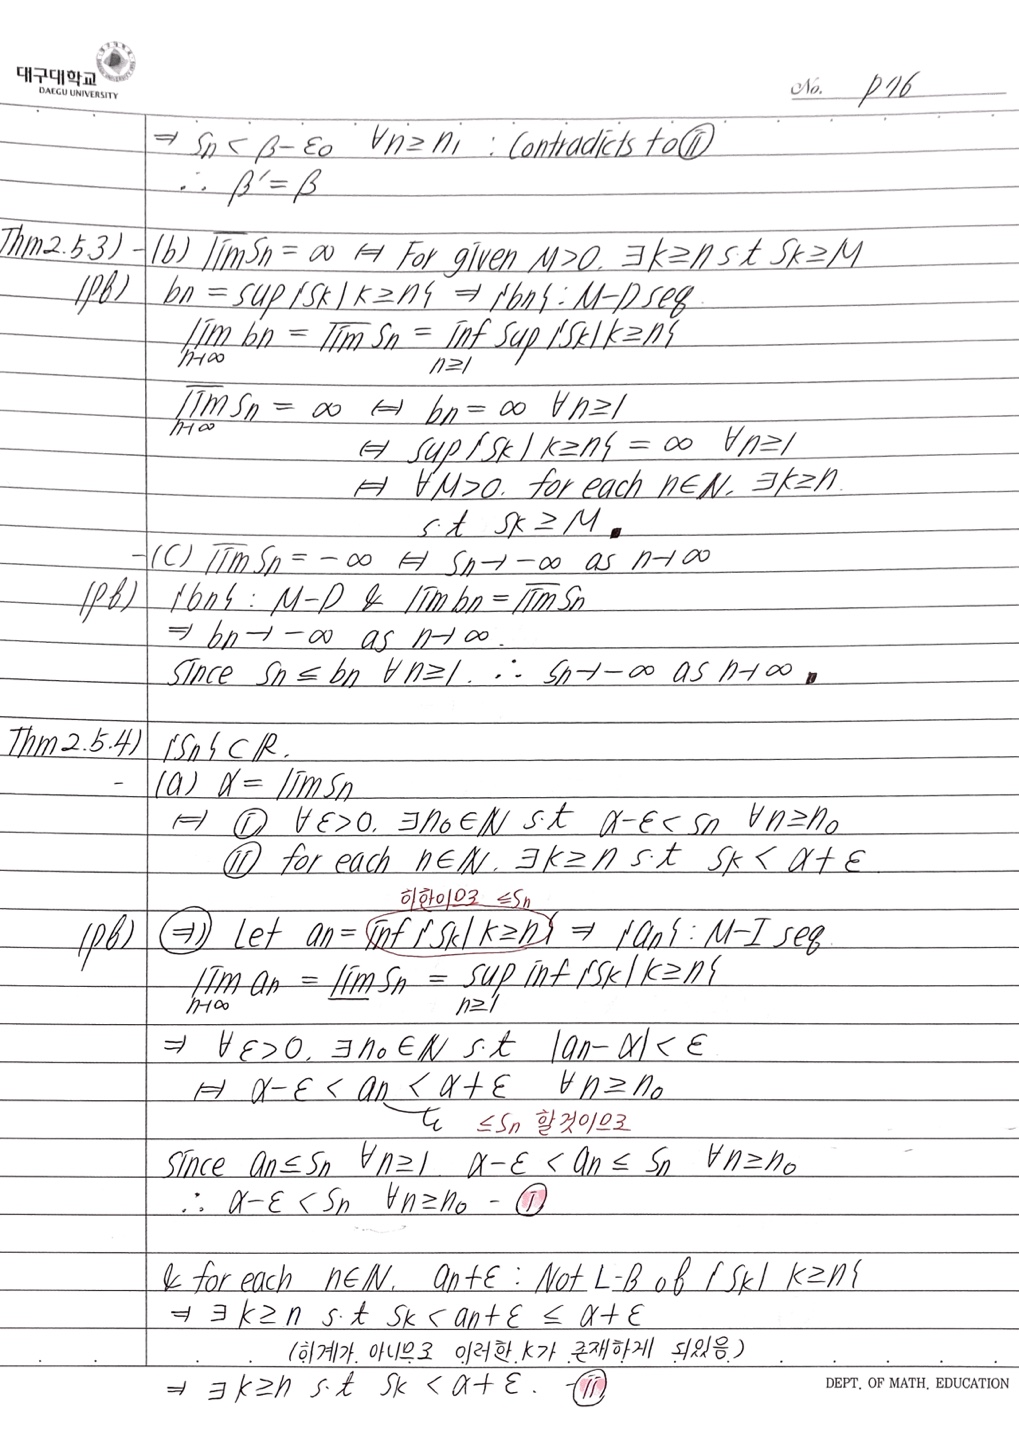 대구대학교
DAEGU UNIVERSITY
No. p76
⇒ Sn < β-ε₀ ∀n≥n₁ : Contradicts to ⓘⓘ
∴ β' = β
Thm2.5.3) -(b) l̅i̅m̅ Sn = ∞ ⇔ For given M>0. ∃k≥n s.t Sk≥M
(pf) bn = sup{Sk | k≥n} ⇒ {bn} : M-D seq.
lim bn = l̅i̅m̅ Sn = inf sup{Sk | k≥n}
n→∞ n≥1
l̅i̅m̅ Sn = ∞ ⇔ bn = ∞ ∀n≥1
n→∞
⇔ sup{Sk | k≥n} = ∞ ∀n≥1
⇔ ∀M>0. for each n∈N. ∃k≥n.
s.t Sk ≥ M ▪
-(C) l̅i̅m̅ Sn = -∞ ⇔ Sn→-∞ as n→∞
(pf) {bn} : M-D & lim bn = l̅i̅m̅ Sn
⇒ bn→-∞ as n→∞.
Since Sn ≤ bn ∀n≥1. ∴ Sn→-∞ as n→∞ ▪
Thm2.5.4) {Sn} ⊂ R.
- (a) α = lim Sn
⇔ ⓘ ∀ε>0. ∃n₀∈N s.t α-ε < Sn ∀n≥n₀
ⓘⓘ for each n∈N. ∃k≥n s.t Sk < α+ε
하한이므로 ≤Sn
(pf) ⇒) Let an = inf{Sk | k≥n} ⇒ {an} : M-I seq.
lim an = l̲i̲m̲ Sn = sup inf{Sk | k≥n}
n→∞ n≥1
⇒ ∀ε>0. ∃n₀∈N s.t |an-α| < ε
⇔ α-ε < an < α+ε ∀n≥n₀
≤Sn 할것이므로
Since an≤Sn ∀n≥1. α-ε < an ≤ Sn ∀n≥n₀
∴ α-ε < Sn ∀n≥n₀ - ⓘ
& for each n∈N. an+ε : Not L-B of {Sk | k≥n}
⇒ ∃k≥n s.t Sk < an+ε ≤ α+ε
(하계가 아니므로 이러한 k가 존재하게 되있음)
⇒ ∃k≥n s.t Sk < α+ε. -ⓘⓘ
DEPT. OF MATH. EDUCATION